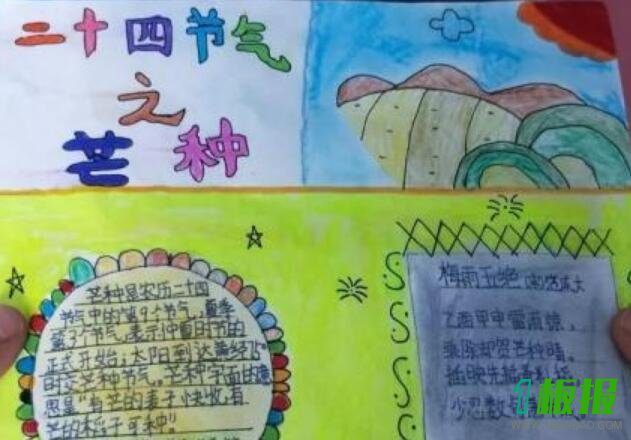 二十四节气
之
芒种
芒种是农历二十四
节气中的第9个节气,夏季
第3个节气,表示仲夏时节的
正式开始;太阳到达黄经75°
时交芒种节气。芒种字面的意
思是“有芒的麦子快收,有
芒的稻子可种”。
梅雨五绝 范成大
乙酉甲申雷雨惊,
乘除却贺芒种晴。
插秧先插蚤籼稻
少忍数
板报